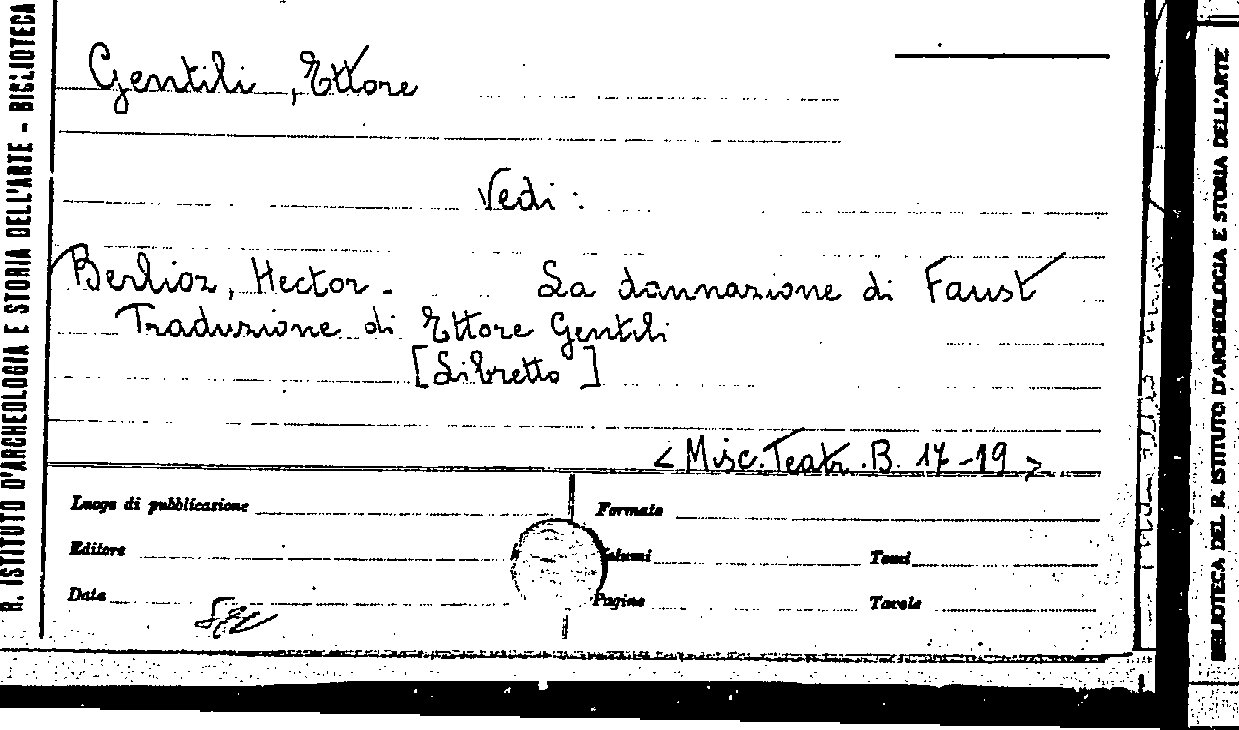 R. ISTITUTO D'ARCHEOLOGIA E STORIA DELL'ARTE - BIBLIOTECA
Gentili, Ettore
Vedi:
Berlioz, Hector. La dannazione di Faust
Traduzione di Ettore Gentili
[Libretto]
< Misc. Teatr. B. 17-19 >
Luogo di pubblicazione
Formato
Editore
Volumi
Tomi
Data
Pagine
Tavole
BIBLIOTECA DEL R. ISTITUTO D'ARCHEOLOGIA E STORIA DELL'ARTE